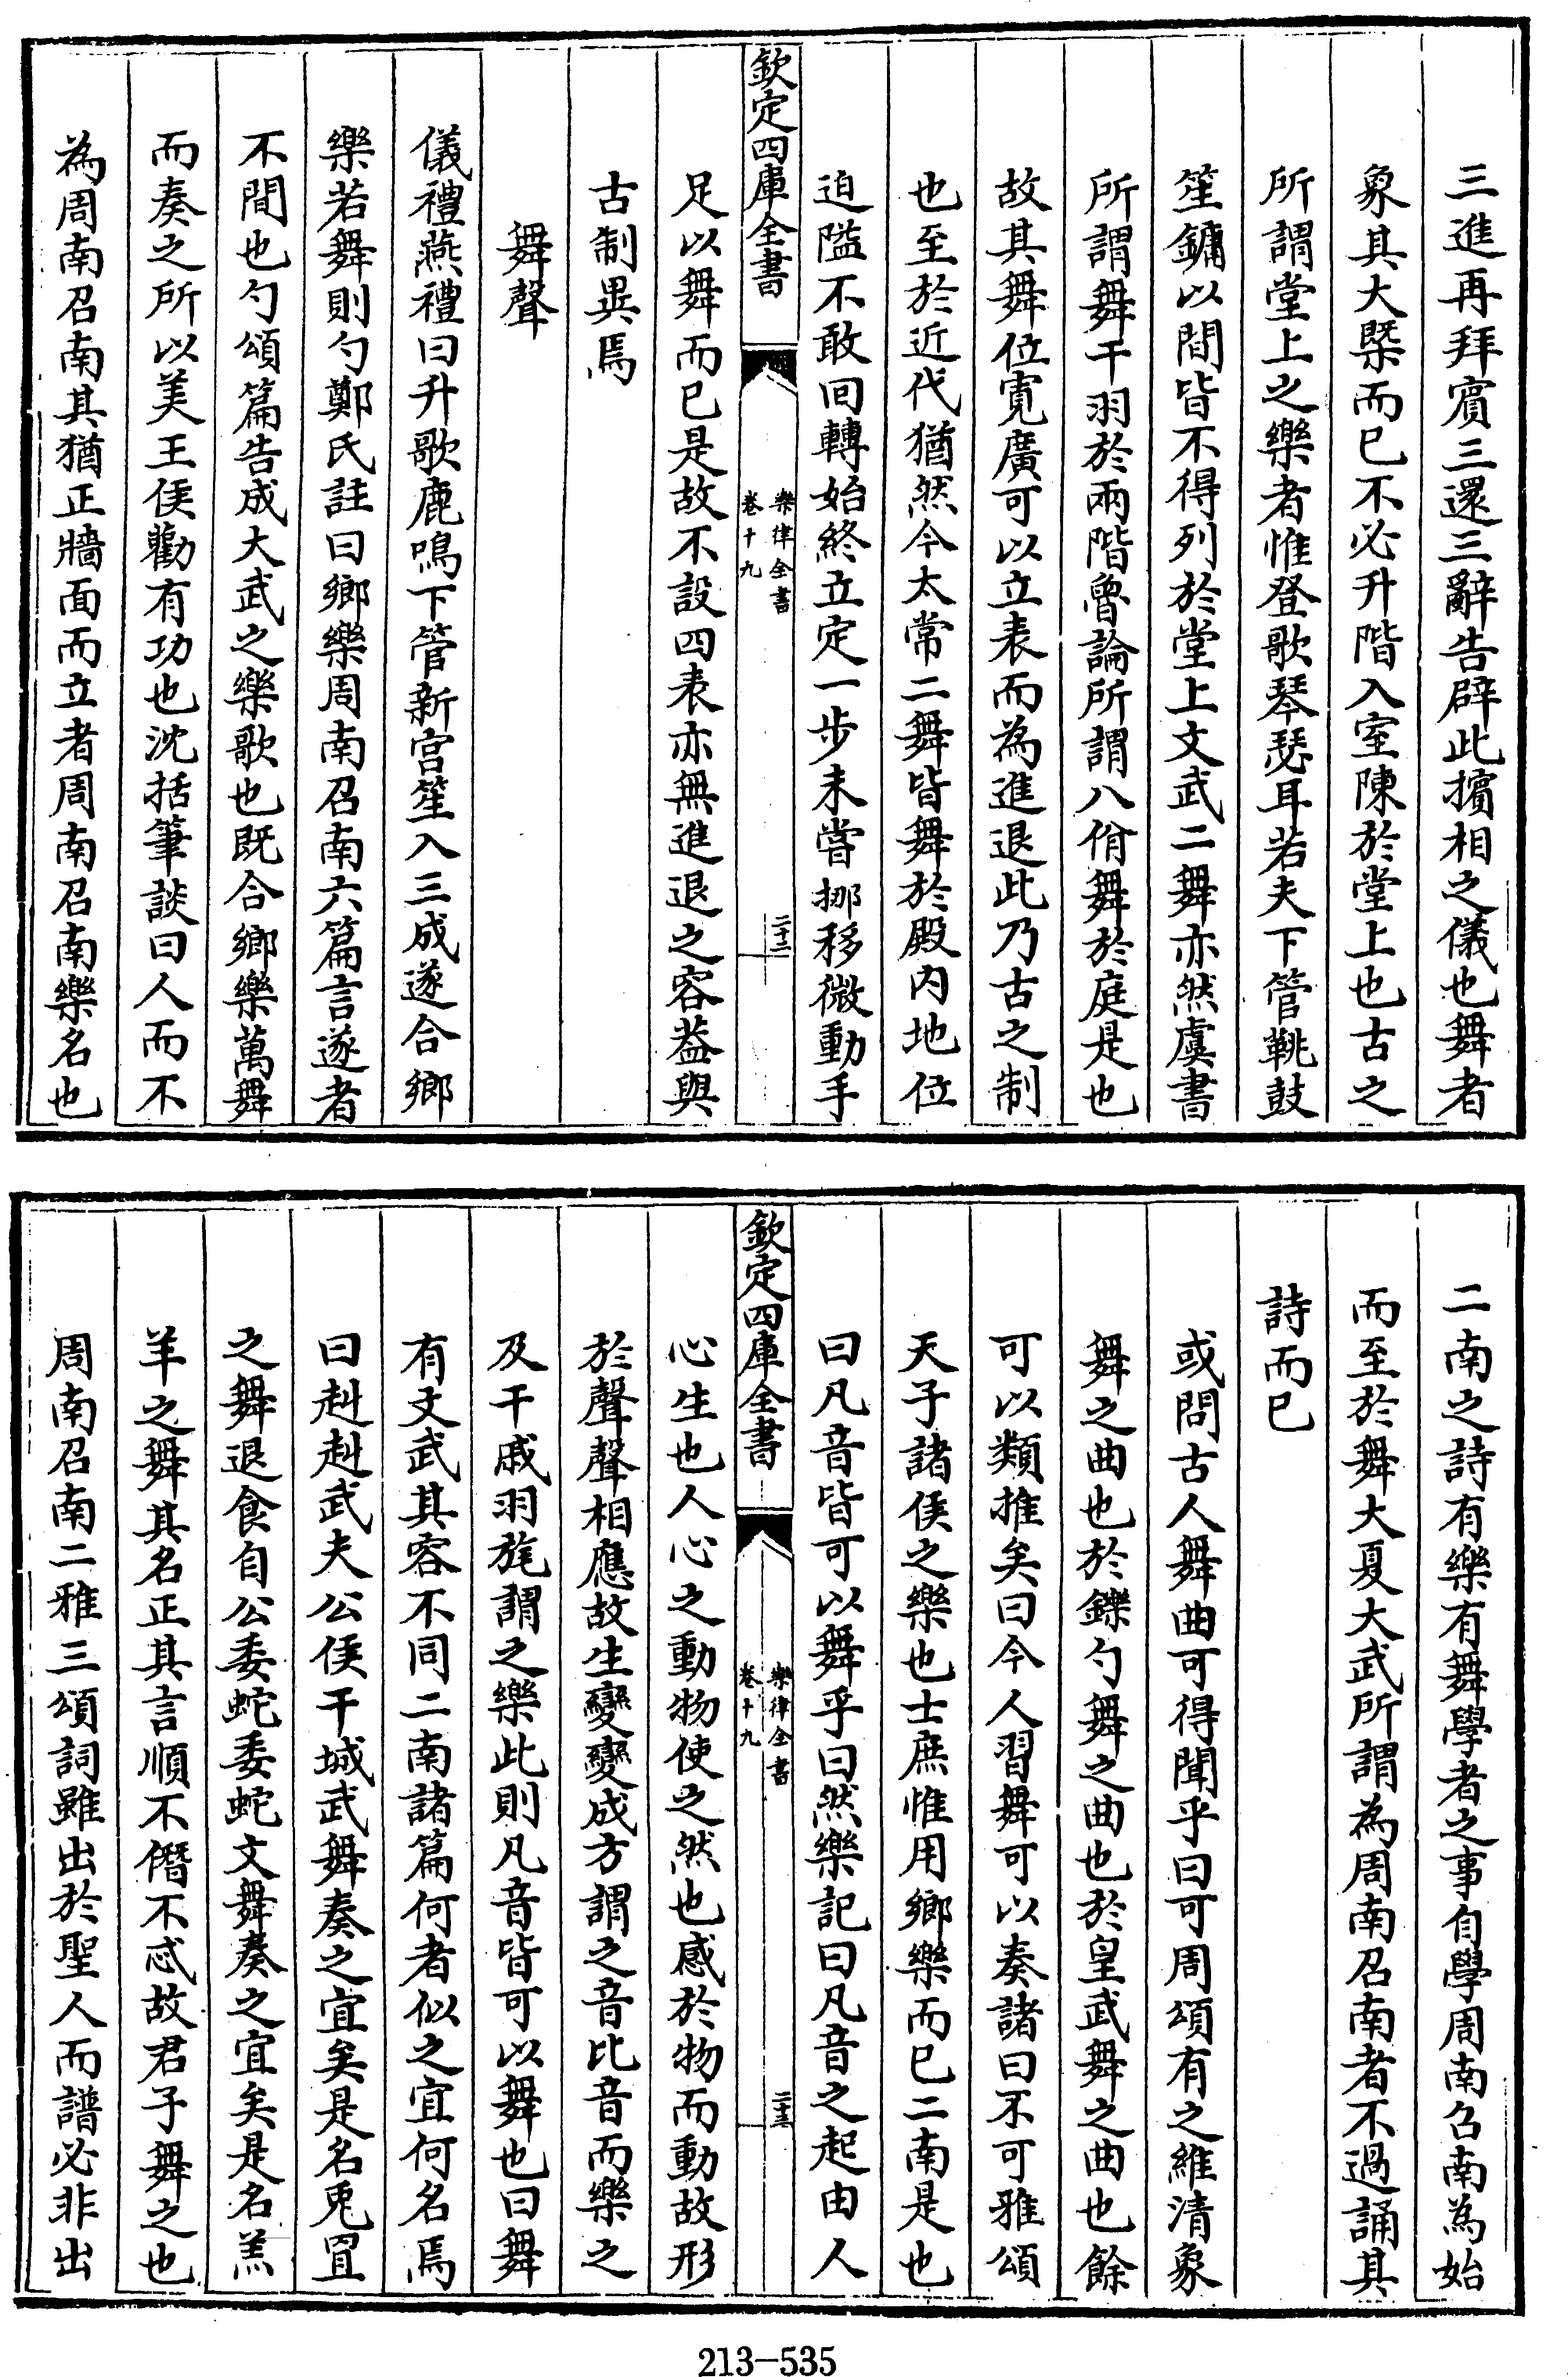 三進再拜賔三還三辭告辟此擯相之儀也舞者
象其大槩而已不必升階入室陳於堂上也古之
所謂堂上之樂者惟登歌琴瑟耳若夫下管鞉鼓
笙鏞以間皆不得列於堂上文武二舞亦然虞書
所謂舞干羽於兩階魯論所謂八佾舞於庭是也
故其舞位寛廣可以立表而為進退此乃古之制
也至於近代猶然今太常二舞皆舞於殿内地位
迫隘不敢回轉始終立定一步未嘗挪移微動手
欽定四庫全書
樂律全書
卷十九
二十二
足以舞而已是故不設四表亦無進退之容葢與
古制異焉
舞聲
儀禮燕禮曰升歌鹿鳴下管新宫笙入三成遂合鄉
樂若舞則勺鄭氏註曰鄉樂周南召南六篇言遂者
不間也勺頌篇告成大武之樂歌也既合鄉樂萬舞
而奏之所以美王侯勸有功也沈括筆談曰人而不
為周南召南其猶正牆面而立者周南召南樂名也
二南之詩有樂有舞學者之事自學周南召南為始
而至於舞大夏大武所謂為周南召南者不過誦其
詩而已
或問古人舞曲可得聞乎曰可周頌有之維清象
舞之曲也於鑠勺舞之曲也於皇武舞之曲也餘
可以類推矣曰今人習舞可以奏諸曰不可雅頌
天子諸侯之樂也士庶惟用鄉樂而已二南是也
曰凡音皆可以舞乎曰然樂記曰凡音之起由人
欽定四庫全書
樂律全書
卷十九
二十三
心生也人心之動物使之然也感於物而動故形
於聲聲相應故生變變成方謂之音比音而樂之
及干戚羽旄謂之樂此則凡音皆可以舞也曰舞
有文武其容不同二南諸篇何者似之宜何名焉
曰赳赳武夫公侯干城武舞奏之宜矣是名兎罝
之舞退食自公委蛇委蛇文舞奏之宜矣是名羔
羊之舞其名正其言順不僭不忒故君子舞之也
周南召南二雅三頌詞雖出於聖人而譜必非出
213-535